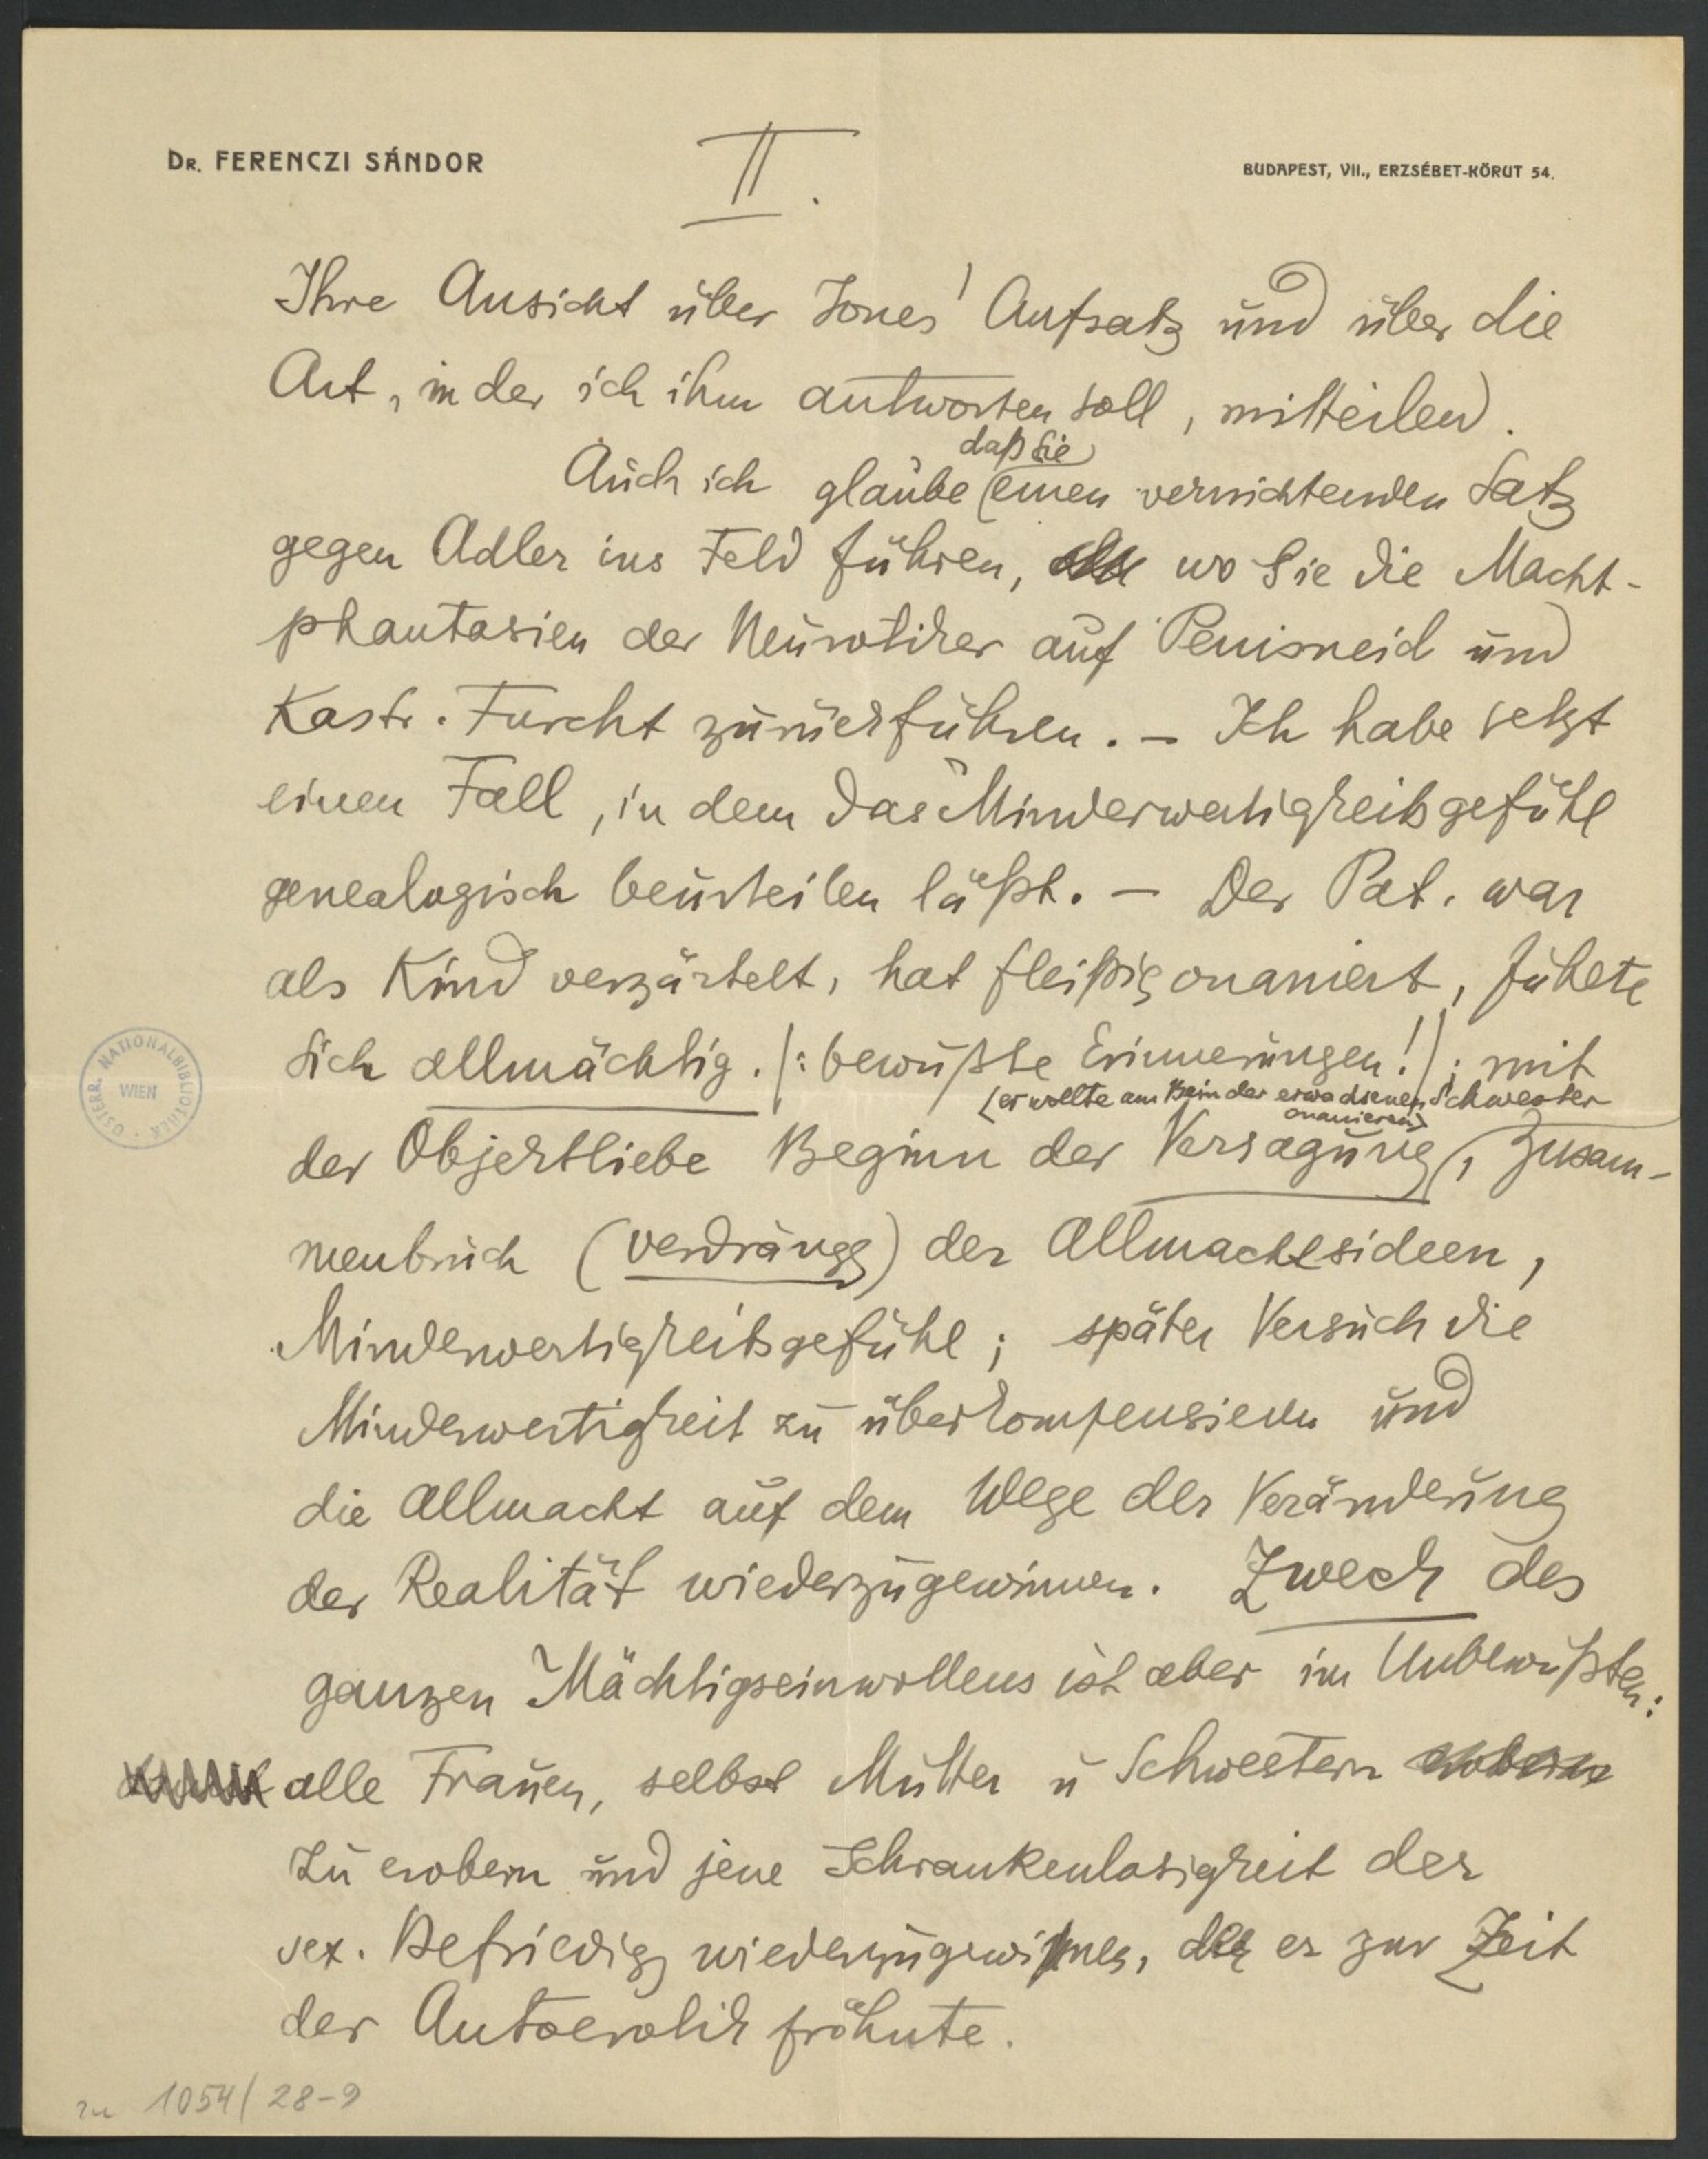 DR. FERENCZI SÁNDOR
II.
BUDAPEST, VII., ERZSÉBET-KÖRUT 54.
Ihre Ansicht über Jones' Aufsatz und über die
Art, in der ich ihm antworten soll, mitteilen.
daß Sie
Auch ich glaube (einen vernichtenden Satz
gegen Adler ins Feld führen, wo Sie die Macht-
phantasien der Neurotiker auf Penisneid und
Kastr. Furcht zurückführen. – Ich habe jetzt
einen Fall, in dem das Minderwertigkeitsgefühl
genealogisch beurteilen läßt. – Der Pat. war
als Kind verzärtelt, hat fleißig onaniert, fühlte
sich allmächtig. /: bewußte Erinnerungen! /; mit
(er wollte am Bein der erwachsenen Schwester
onanieren)
der Objektliebe Beginn der Versagung, Zusam-
menbruch (verdrängg) der Allmachtsideen,
Minderwertigkeitsgefühl; später Versuch die
Minderwertigkeit zu überkompensieren und
die Allmacht auf dem Wege der Veränderung
der Realität wiederzugewinnen. Zweck des
ganzen Mächtigseinwollens ist aber im Unbewußten:
alle Frauen, selbst Mutter u Schwestern
zu erobern und jene Schrankenlosigkeit der
sex. Befriedigg wiederzugewinnen, der er zur Zeit
der Autoerotik fröhnte.
ÖSTERR. NATIONALBIBLIOTHEK
WIEN
zu 1054/28-9